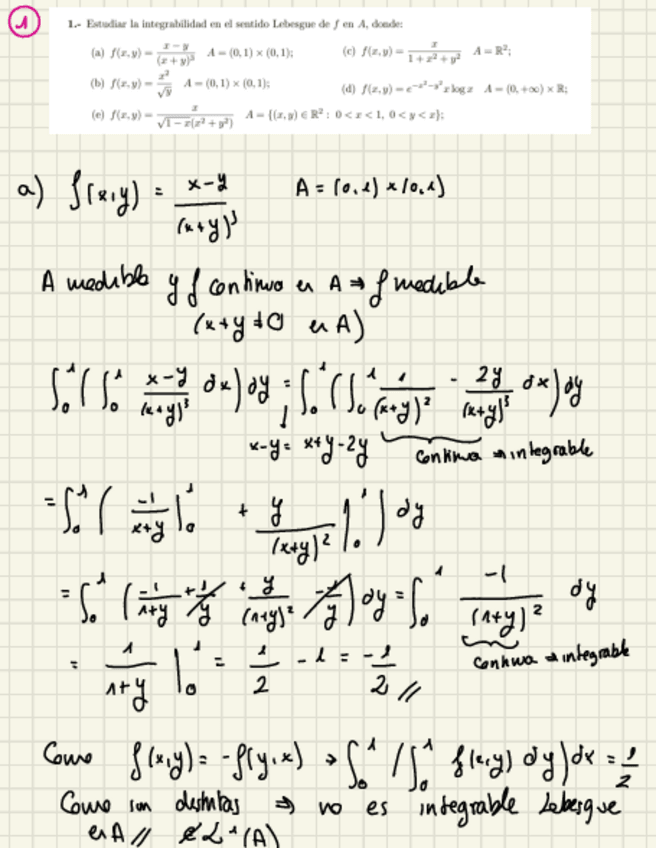 1
1.- Estudiar la integrabilidad en el sentido Lebesgue de f en A, donde:
(a) f(x,y) = (x−y)/(x+y)³ A = (0,1) × (0,1); (c) f(x,y) = x/(1+x²+y²) A = ℝ²;
(b) f(x,y) = x²/√y A = (0,1) × (0,1); (d) f(x,y) = e^(−x²−y²) x log x A = (0,+∞) × ℝ;
(e) f(x,y) = x/(√(1−x)(x²+y²)) A = {(x,y) ∈ ℝ² : 0 < x < 1, 0 < y < x};
a) f(x,y) = (x-y)/(x+y)³ A = (0,1) x (0,1)
A medible y f continua en A ⇒ f medible
(x+y ≠ 0 en A)
∫₀¹ ( ∫₀¹ (x-y)/(x+y)³ dx ) dy = ∫₀¹ ( ∫₀¹ 1/(x+y)² - 2y/(x+y)³ dx ) dy
↓ x-y = x+y-2y continua ⇒ integrable
= ∫₀¹ ( -1/(x+y) |₀¹ + y/(x+y)² |₀¹ ) dy
= ∫₀¹ ( -1/(1+y) + 1/y + y/(1+y)² - 1/y ) dy = ∫₀¹ -1/(1+y)² dy
continua ⇒ integrable
= 1/(1+y) |₀¹ = 1/2 - 1 = -1/2 //
Como f(x,y) = -f(y,x) ⇒ ∫₀¹ ( ∫₀¹ f(x,y) dy ) dx = 1/2
Como son distintas ⇒ no es integrable Lebesgue
en A // ∉ L¹(A)